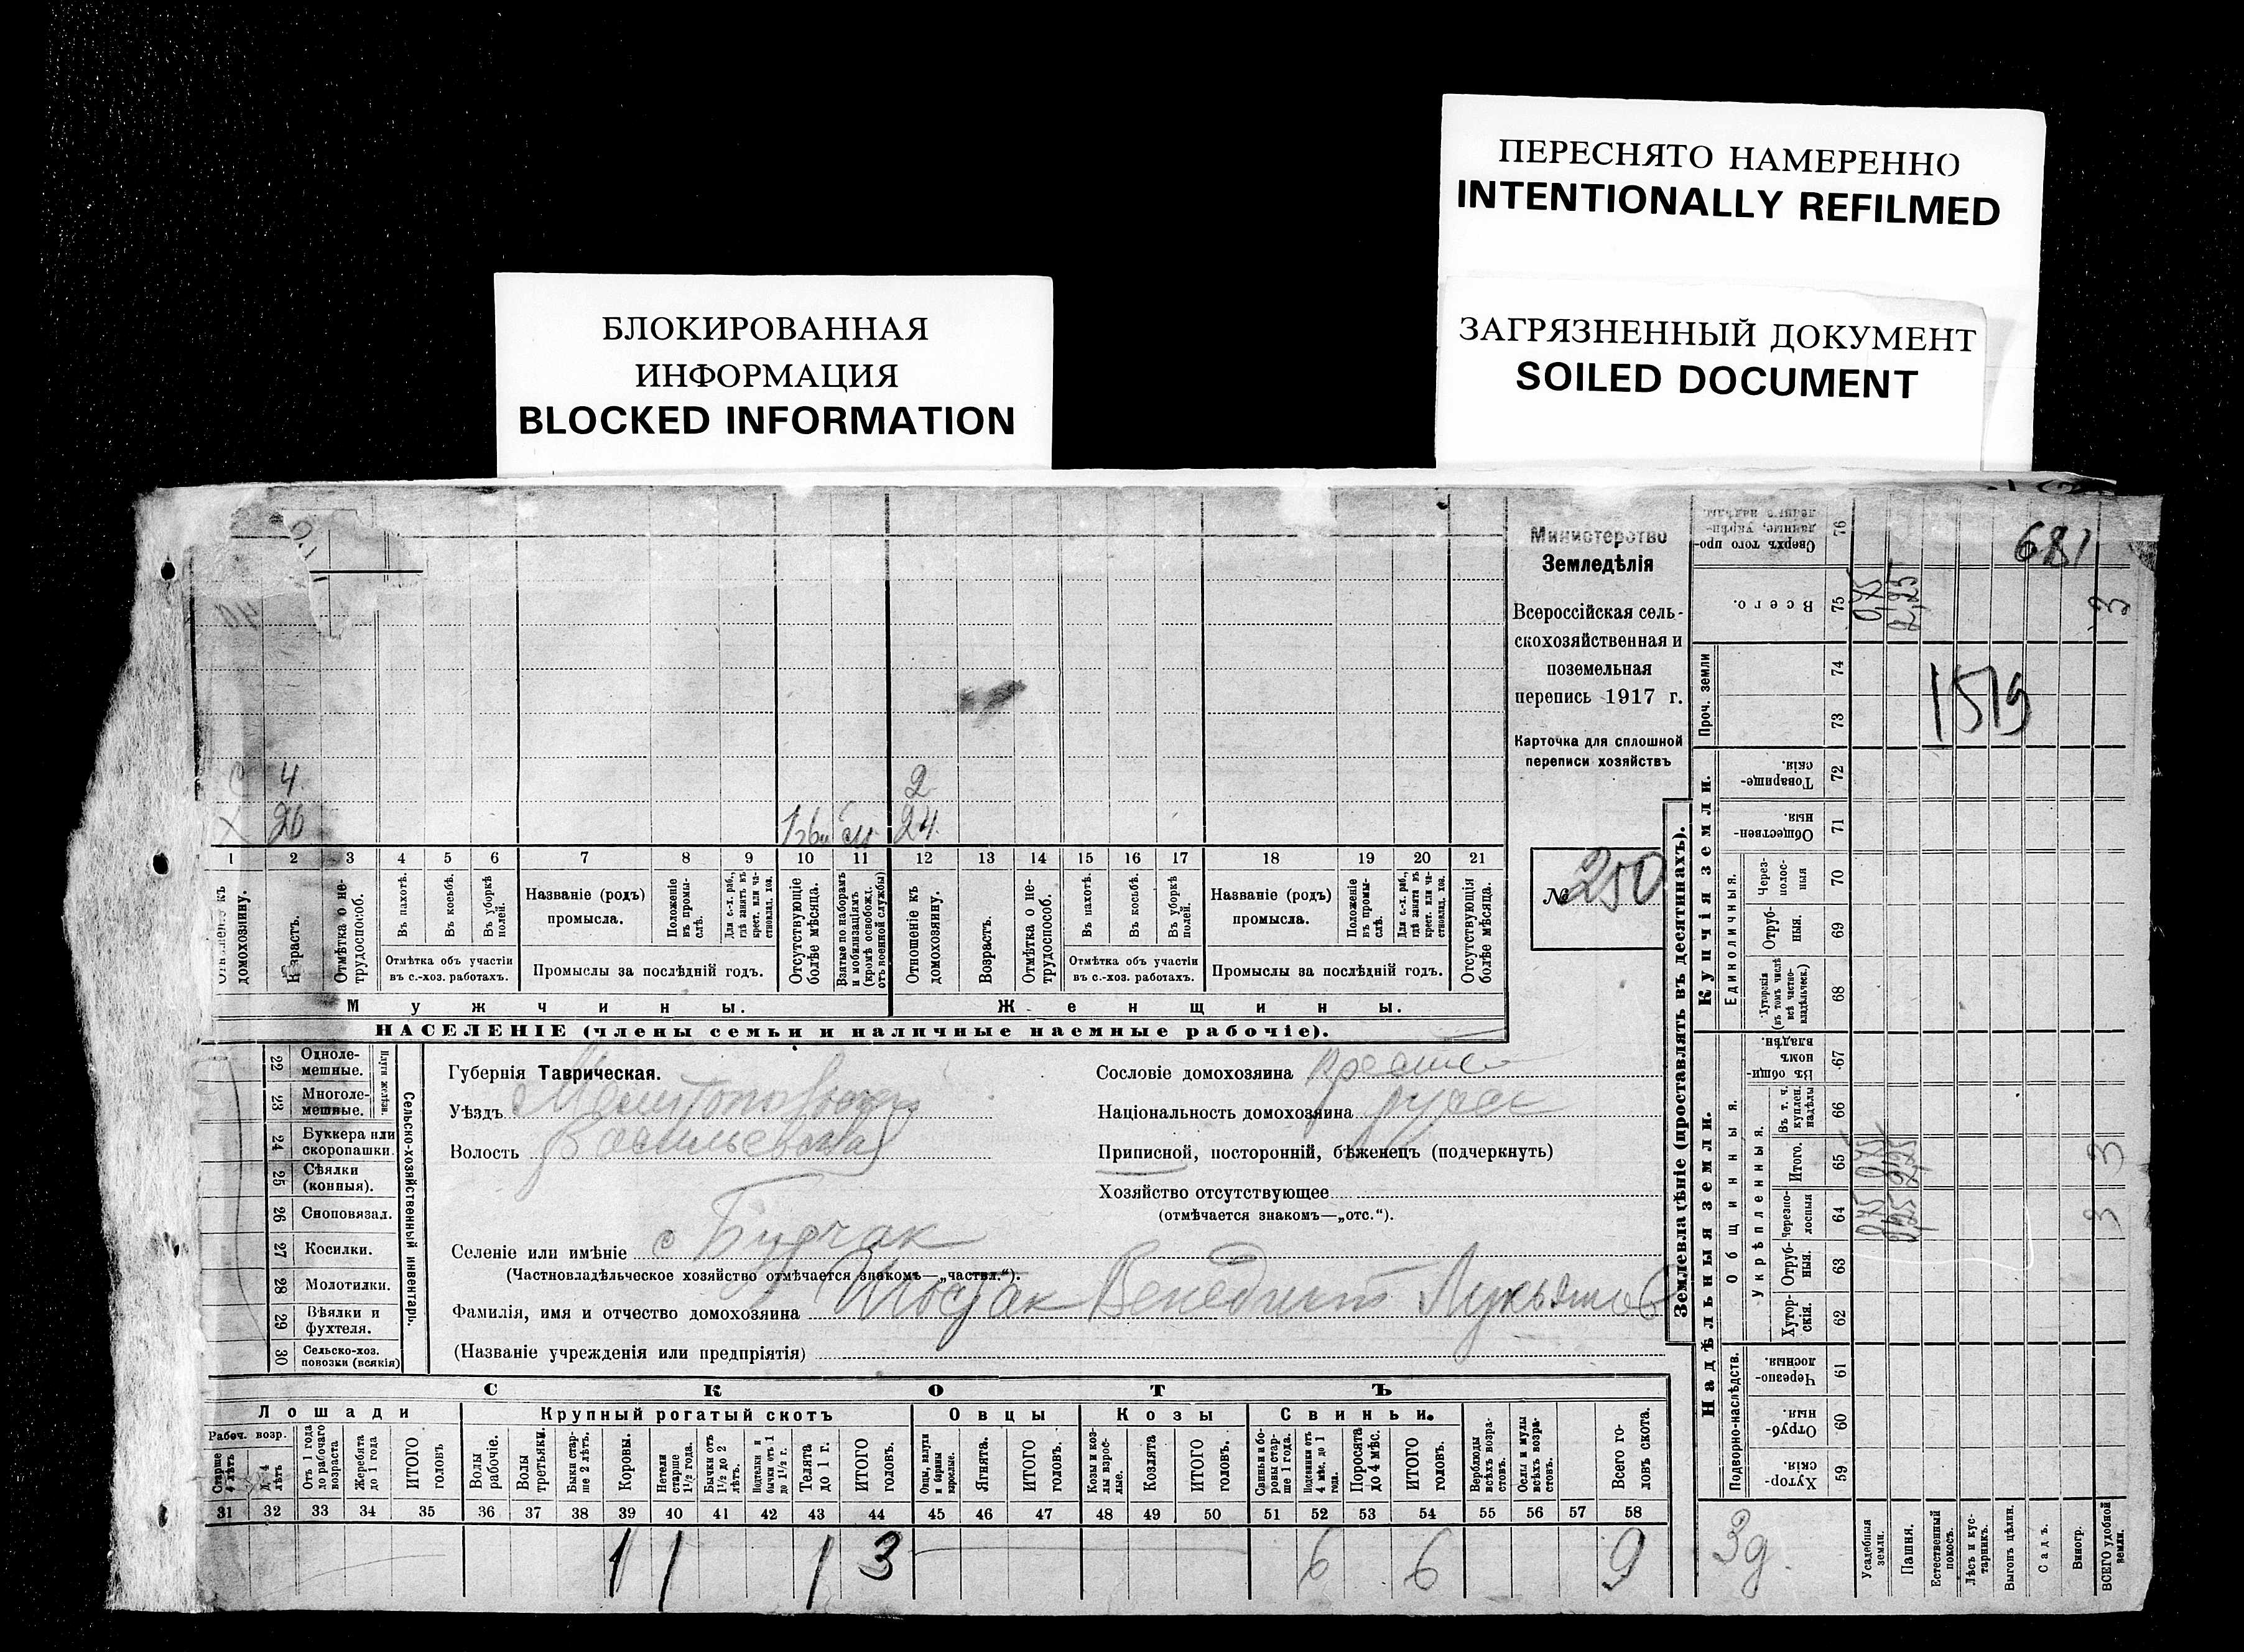 ПЕРЕСНЯТО НАМЕРЕННО
INTENTIONALLY REFILMED
БЛОКИРОВАННАЯ
ИНФОРМАЦИЯ
BLOCKED INFORMATION
ЗАГРЯЗНЕННЫЙ ДОКУМЕНТ
SOILED DOCUMENT
Министерство
Земледѣлія
Всероссійская сель-
скохозяйственная и
поземельная
перепись 1917 г.
Карточка для сплошной
переписи хозяйствъ
№ 250
4 2
X 20 24
1 2 3 4 5 6 7 8 9 10 11 12 13 14 15 16 17 18 19 20 21
домохозяину.
Возрастъ.
Отмѣтка о не-
трудоспособ.
Въ пахотѣ.
Въ косьбѣ.
Въ уборкѣ
полей.
Отмѣтка объ участіи
въ с.-хоз. работахъ.
Названіе (родъ)
промысла.
Положеніе
въ промы-
слѣ.
Для с.-х. раб.,
гдѣ занятъ въ
крест. или ча-
стновлад. хоз.
Промыслы за послѣдній годъ.
Отсутствующіе
болѣе мѣсяца.
Взятые по наборамъ
и мобилизаціямъ
(кромѣ освобожд.
отъ военной службы)
Отношеніе къ
домохозяину.
Возрастъ.
Отмѣтка о не-
трудоспособ.
Въ пахотѣ.
Въ косьбѣ.
Въ уборкѣ
полей.
Отмѣтка объ участіи
въ с.-хоз. работахъ.
Названіе (родъ)
промысла.
Положеніе
въ промы-
слѣ.
Для с.-х. раб.,
гдѣ занятъ въ
крест. или ча-
стновлад. хоз.
Промыслы за послѣдній годъ.
Отсутствующія
болѣе мѣсяца.
Мужчины. Женщины.
НАСЕЛЕНІЕ (члены семьи и наличные наемные рабочіе).
22 Одноле-
мешные.
23 Многоле-
мешные.
Плуги желѣзн.
24 Буккера или
скоропашки.
25 Сѣялки
(конныя).
26 Сноповязал.
27 Косилки.
28 Молотилки.
29 Вѣялки и
фухтеля.
30 Сельско-хоз.
повозки (всякія)
Сельско-хозяйственный инвентарь.
Губернія Таврическая.
Уѣздъ Мелитопольскій
Волость Васильевская
Селеніе или имѣніе с Бурчак
(Частновладѣльческое хозяйство отмѣчается знакомъ—„частвл.“).
Фамилія, имя и отчество домохозяина Шостак Венедикт Лукьянов
(Названіе учрежденія или предпріятія)
Сословіе домохозяина
Національность домохозяина русск
Приписной, посторонній, бѣженецъ (подчеркнуть)
Хозяйство отсутствующее
(отмѣчается знакомъ—„отс.“).
СКОТЪ
Лошади Крупный рогатый скотъ Овцы Козы Свиньи.
Рабоч. возр.
Старше
4 лѣтъ
До 4
лѣтъ
Отъ 1 года
до рабочаго
возраста
Жеребята
до 1 года
ИТОГО
головъ
Волы
рабочіе.
Волы
третьяки.
Быки стар-
ше 2 лѣтъ.
Коровы.
Нетели
старше
1½ года.
Бычки отъ
1½ до 2
лѣтъ.
Подтелки и
бычки отъ 1
до 1½ г.
Телята
до 1 г.
ИТОГО
головъ.
Овцы, валухи
и бараны
взрослые.
Ягнята.
ИТОГО
головъ.
Козы и коз-
лы взрос-
лые.
Козлята
ИТОГО
головъ.
Свиньи и бо-
ровы стар-
ше 1 года.
Подсвинки отъ
4 мѣс. до 1
года.
Поросята
до 4 мѣс.
ИТОГО
головъ.
Верблюды
всѣхъ возра-
стовъ.
Ослы и мулы
всѣхъ возра-
стовъ.
Всего го-
ловъ скота.
31 32 33 34 35 36 37 38 39 40 41 42 43 44 45 46 47 48 49 50 51 52 53 54 55 56 57 58
1 1 1 3 6 6 9
Землевладѣніе (проставлять въ десятинахъ).
Сверхъ того про-
даннные, укрѣп-
76
681
Всего.
75
0,75
2,25
3
Проч. земли
74
73
1519
Купчія земли.
Товарище-
скія.
72
Обществен-
ныя
71
Единоличныя.
Через-
полос-
ныя
70
Отруб-
ныя.
69
Хуторскія
(въ томъ числѣ
всѣ частно-
владѣльческ.)
68
Надѣльныя земли.
Общинныя.
Въ общи-
номъ
владѣн.
67
Укрѣпленныя.
Въ т. ч.
куплен.
надѣлы
66
Итого.
65
0,75
2,25
3
Черезпо-
лосныя
64
0,75
2,25
3
Отруб-
ныя.
63
Хутор-
скія.
62
Подворно-наслѣдств.
Черезпо-
лосныя.
61
Отруб-
ныя.
60
Хутор-
скія.
59
3д.
Усадебныя
земли.
Пашня.
Естественный
покосъ.
Лѣсъ и кус-
тарникъ.
Выгонъ цѣлин.
Садъ.
Виногр.
ВСЕГО удобной
земли.